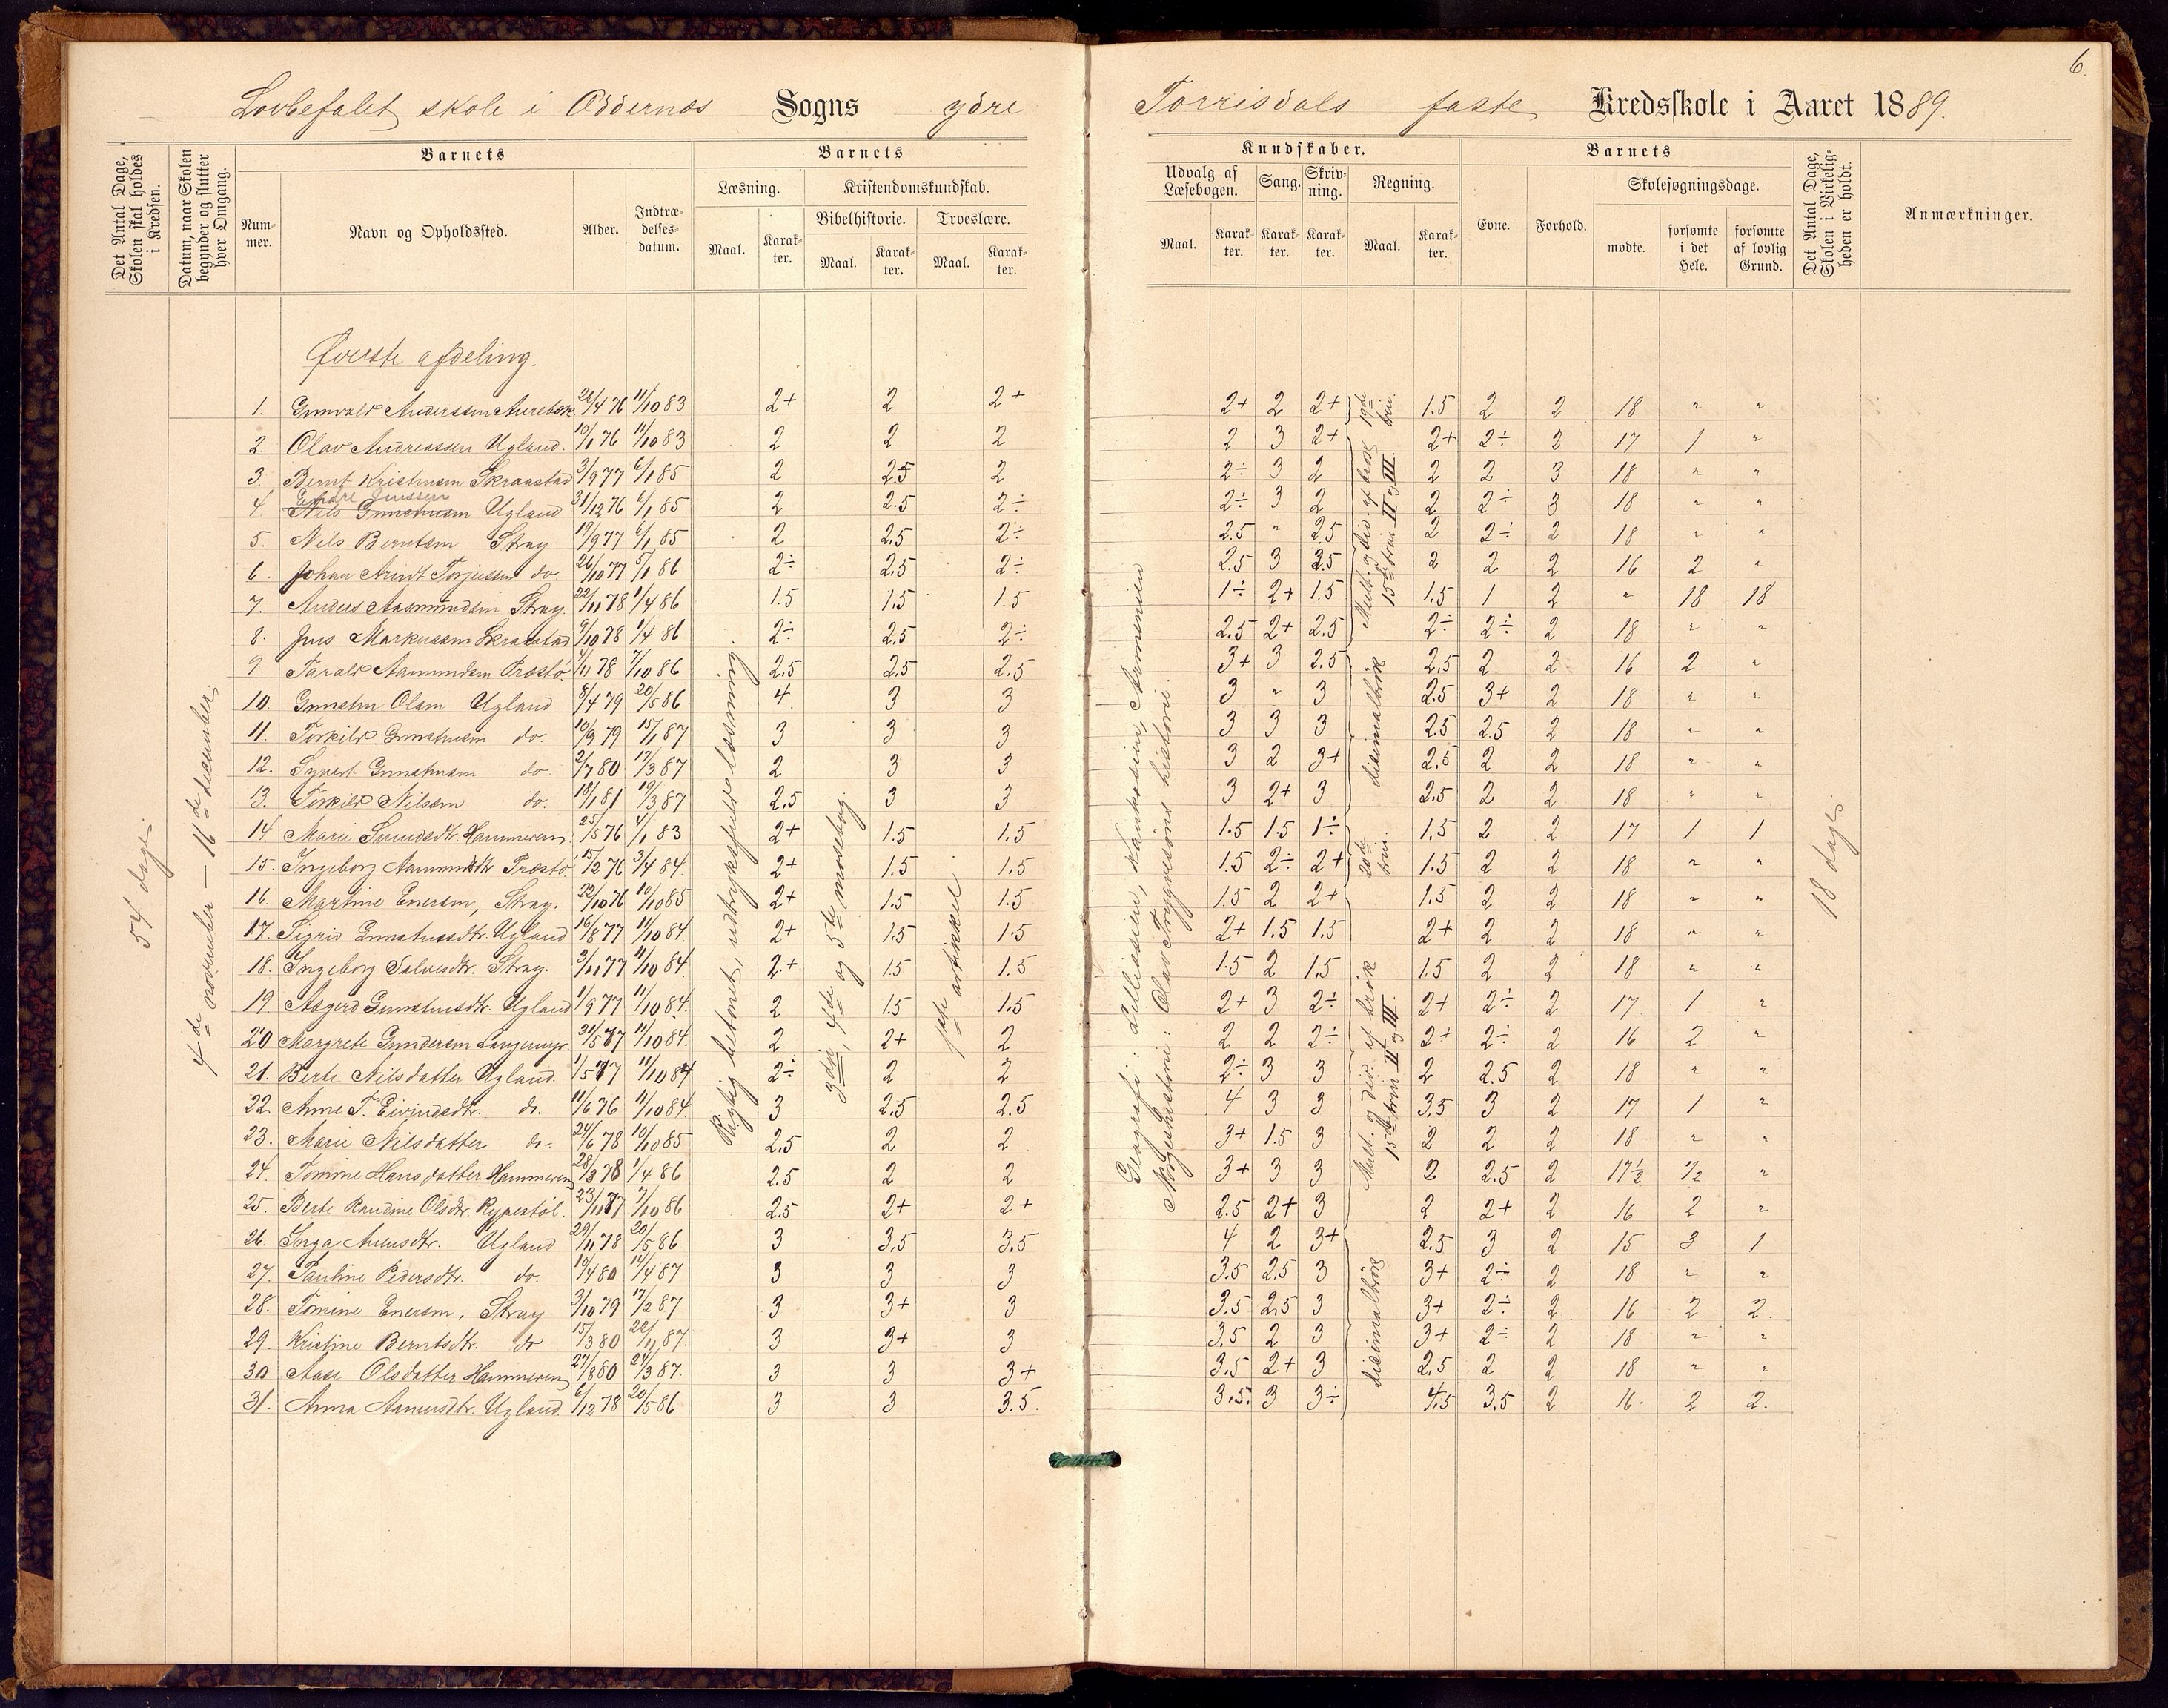 6.
Lovbefalet skole i Oddernes Sogns ydre Torrisdals faste Kredsskole i Aaret 1889.
Det Antal Dage, Skolen skal holdes i Kredsen.
Datum, naar Skolen begynder og slutter hver Omgang.
Barnets
Nummer.
Navn og Opholdssted.
Alder.
Indtrædelsesdatum.
Barnets
Læsning.
Maal.
Karakter.
Kristendomskundskab.
Bibelhistorie.
Maal.
Karakter.
Troeslære.
Maal.
Karakter.
Kundskaber.
Udvalg af Læsebogen.
Maal.
Karakter.
Sang.
Karakter.
Skrivning.
Karakter.
Regning.
Maal.
Karakter.
Barnets
Evne.
Forhold.
Skolesøgningsdage.
mødte.
forsømte i det Hele.
forsømte af lovlig Grund.
Det Antal Dage, Skolen i Virkeligheden er holdt.
Anmærkninger.
54 dage.
4de november — 16de december.
Øverste afdeling.
Rigtig betonet, udtryksfuld læsning
3die, 4de og 5te mosebog
1ste artikkel
Geografi: Lilleasien, Kaukasien, Armenien
Norgeshistorie: Olav Trygvesøns historie.
19de trin.
Mult. og div. af brøk 15de trin II og III.
desimalbrøk
20de trin.
Mult. og div. af brøk 15de trin II og III.
desimalbrøk
18 dage.
1. Gunvald Anderssen 20/4 76 11/10 83 2+ 2 2+ 2+ 2 2+ 1.5 2 2 18 " "
2. Olav Andreassen Ugland. 10/1 76 11/10 83 2 2 2 2 3 2+ 2+ 2÷ 2 17 1 "
3. Bernt Kristensen Skraastad 3/9 77 6/1 85 2 2.5 2 2÷ 3 2 2 2 3 18 " "
4. Nils Gunstensen Ugland 31/12 76 6/1 85 2 2.5 2÷ 2÷ 3 2 2 2÷ 3 18 " "
5. Nils Berntsen Stray 19/9 77 6/1 85 2 2.5 2÷ 2.5 " 2.5 2 2÷ 2 18 " "
6. Johan Arndt Torjussen do. 26/10 77 5/1 86 2÷ 2.5 2÷ 2.5 3 3.5 2 2 2 16 2 "
7. Anders Aasmundsen Stray. 22/11 78 1/4 86 1.5 1.5 1.5 1÷ 2+ 1.5 1.5 1 2 " 18 18
8. Jens Markussen Skraastad 9/10 78 1/4 86 2÷ 2.5 2÷ 2.5 2+ 2.5 2÷ 2÷ 2 18 " "
9. Tarald Aamundsen Præstø. 4/11 78 7/10 86 2.5 2.5 2.5 3+ 3 2.5 2.5 2 2 16 2 "
10. Gunsten Olsen Ugland 8/4 79 20/5 86 4. 3 3 3 " 3 2.5 3+ 2 18 " "
11. Torkild Gunstensen do. 10/9 79 15/1 87 3 3 3 3 3 3 2.5 2.5 2 18 " "
12. Syvert Gunstensen do. 2/7 80 17/3 87 2 3 3 3 2 3+ 2.5 2 2 18 " "
13. Torkild Nilsen do. 18/1 81 19/3 87 2.5 3 3 3 2+ 3 2.5 2 2 18 " "
14. Marie Hammeren 25/5 76 4/1 83 2+ 1.5 1.5 1.5 1.5 1÷ 1.5 2 2 17 1 1
15. Ingeborg Aamundsdtr. Præstø 15/2 76 3/4 84. 2+ 1.5 1.5 1.5 2÷ 2+ 1.5 2 2 18 " "
16. Martine Enersen, Stray. 22/10 76 10/10 85 2+ 1.5 1.5 1.5 2 2+ 1.5 2 2 18 " "
17. Sigrid Gunstensdtr. Ugland 16/8 77 11/10 84. 2+ 1.5 1.5 2+ 1.5 1.5 2+ 2 2 18 " "
18. Ingeborg Salvesdtr. Stray. 3/11 77 11/10 84. 2+ 1.5 1.5 1.5 2 1.5 1.5 2 2 18 " "
19. Aasgerd Gunstensdtr. Ugland 1/9 77 11/10 84. 2 1.5 1.5 2+ 3 2÷ 2+ 2÷ 2 17 1 "
20 Margrete Gundersen Langemyr. 31/5 77 11/10 84. 2 2+ 2 2 2 2÷ 2+ 2÷ 2 16 2 "
21. Berte Nilsdatter Ugland. 1/5 77 11/10 84 2÷ 2 2 2÷ 3 3 2 2.5 2 18 " "
22. Anne T. Eivindsdtr. do. 11/6 76 11/10 84. 3 2.5 2.5 4 3 3 3.5 3 2 17 1 "
23. Marie Nilsdatter do. 24/6 78 10/10 85 2.5 2 2 3+ 1.5 3 2 2 2 18 " "
24. Tomine Hansdatter Hammeren 28/3 78 1/4 86 2.5 2 2 3+ 3 3 2 2.5 2 17½ ½ "
25. Berte Raudine Olsdtr. Rypestøl. 23/11 77 7/10 86 2.5 2+ 2+ 2.5 2+ 3 2 2+ 2 16 2 "
26. Inga Ugland 29/11 78 20/5 86 3 3.5 3.5 4 2 3+ 2.5 3 2 15 3 1
27. Pauline Pedersdtr. do. 19/4 80 14/4 87 3 3 3 3.5 2.5 3 3+ 2÷ 2 18 " "
28. Tomine Enersen, Stray 3/10 79 17/2 87 3 3+ 3 3.5 2.5 3 3+ 2÷ 2 16 2 2.
29. Kristine Berntsdtr. do 15/3 80 22/11 87. 3 3+ 3 3.5 2 3 3+ 2÷ 2 18 " "
30 Aase Olsdatter Hammeren 27/8 80 24/3 87. 3 3 3+ 3.5 2+ 3 2.5 2 2 18 " "
31. Anna Ugland. 6/12 78 20/5 86 3 3 3.5. 3.5. 3 3÷ 4.5 3.5 2 16. 2 2.